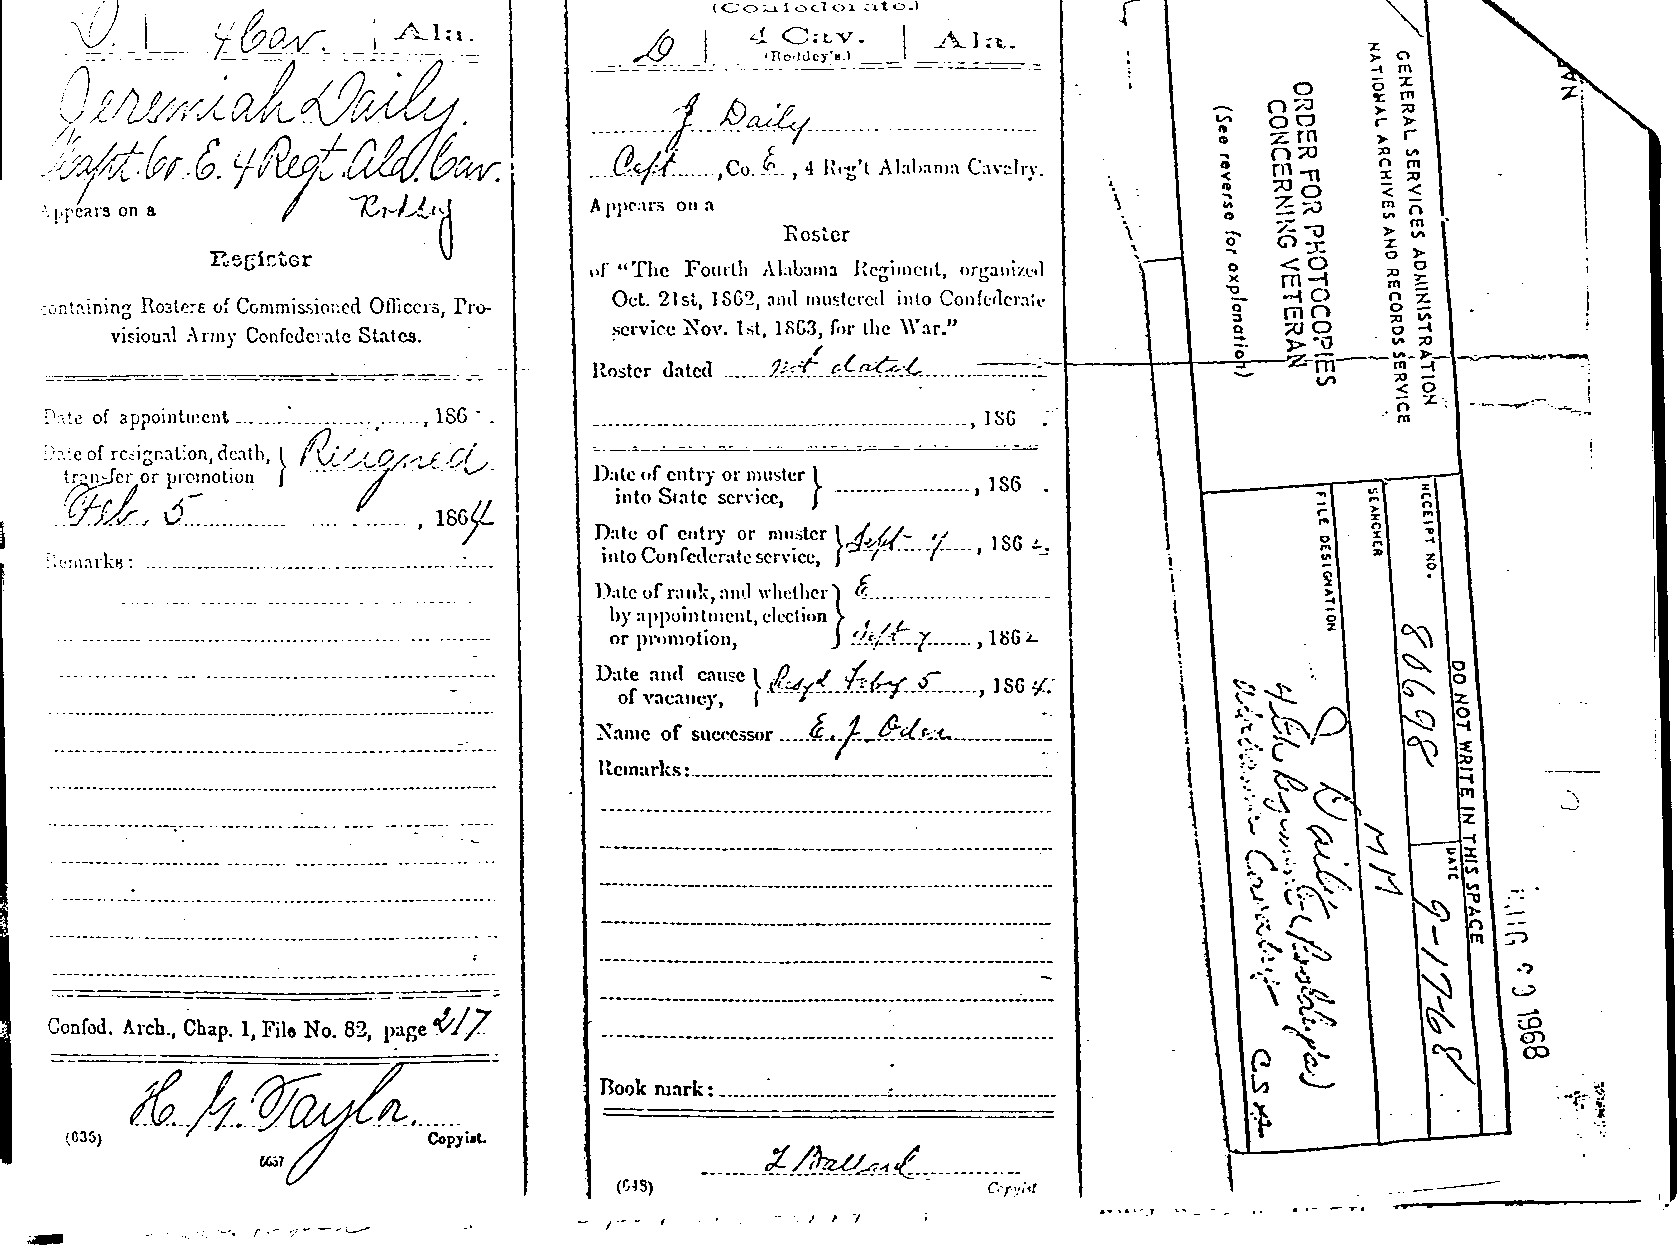 D. | 4 Cav. | Ala.
Jeremiah Daily.
Capt. Co. E. 4 Regt. Ala. Cav.
Appears on a Roddey
Register
containing Rosters of Commissioned Officers, Pro-
visional Army Confederate States.
Date of appointment , 186 .
Date of resignation, death, } Resigned
transfer or promotion
Feb. 5 , 1864
Remarks:
Confed. Arch., Chap. 1, File No. 82, page 217
H. M. Taylor
(635) Copyist.
6637
(Confederate.)
D | 4 Cav. | Ala.
(Roddey's.)
J Daily
Capt , Co. E , 4 Reg't Alabama Cavalry.
Appears on a
Roster
of "The Fourth Alabama Regiment, organized
Oct. 21st, 1862, and mustered into Confederate
service Nov. 1st, 1863, for the War."
Roster dated not dated
, 186 .
Date of entry or muster
into State service, } , 186 .
Date of entry or muster
into Confederate service, } Sept 7 , 1862.
Date of rank, and whether E
by appointment, election
or promotion, } Sept 7 , 1862
Date and cause
of vacancy, } Resgd Feby 5 , 1864.
Name of successor E. J. Oden
Remarks:
Book mark:
L Ballard
(648) Copyist
GENERAL SERVICES ADMINISTRATION
NATIONAL ARCHIVES AND RECORDS SERVICE
ORDER FOR PHOTOCOPIES
CONCERNING VETERAN
(See reverse for explanation)
DO NOT WRITE IN THIS SPACE
RECEIPT NO. 80698 DATE 9-17-68
SEARCHER MM
FILE DESIGNATION
J Daily
4th Regiment (Roddey's)
Alabama Cavalry CSA
1968